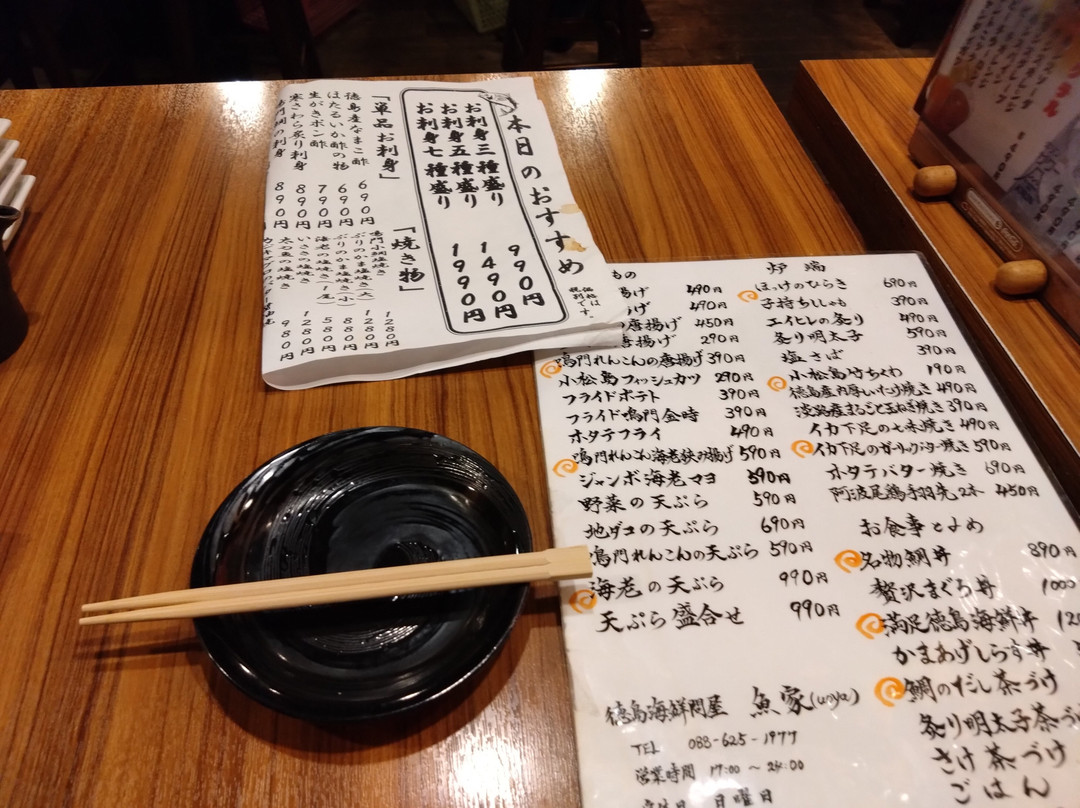 本日のおすすめ
価格は税別です。
お刺身三種盛り 990円
お刺身五種盛り 1490円
お刺身七種盛り 1990円
「単品お刺身」
徳島産なまこ酢 690円
ほたるいか酢の物 690円
生がきポン酢 790円
寒さわら炙り刺身 890円
鳴門鯛の刺身 890円
「焼き物」
鳴門小鯛塩焼き 1280円
ぶりのかま塩焼き(大) 1280円
ぶりのかま塩焼き(小) 880円
海老の塩焼き(1尾) 580円
いさきの塩焼き 1280円
太刀魚の塩焼き 980円
もの
揚げ 490円
げ 490円
の唐揚げ 450円
唐揚げ 290円
鳴門れんこんの唐揚げ 390円
小松島フィッシュカツ 290円
フライドポテト 390円
フライド鳴門金時 390円
ホタテフライ 490円
鳴門れんこん海老挟み揚げ 590円
ジャンボ海老マヨ 590円
野菜の天ぷら 590円
地ダコの天ぷら 690円
鳴門れんこんの天ぷら 590円
海老の天ぷら 990円
天ぷら盛合せ 990円
徳島海鮮問屋 魚家(uoya)
TEL 088-625-1977
営業時間 17:00〜24:00
定休日 日曜日
炉端
ほっけのひらき 690円
子持ちししゃも 390円
エイヒレの炙り 490円
炙り明太子 590円
塩さば 390円
小松島竹ちくわ 190円
徳島産肉厚しいたけ焼き 490円
淡路産まるごと玉ねぎ焼き 390円
イカ下足の七味焼き 490円
イカ下足のガーリックバター焼き 590円
ホタテバター焼き 690円
阿波尾鶏手羽先2本 450円
お食事と〆め
名物鯛丼 890円
贅沢まぐろ丼 1000
満足徳島海鮮丼 12
かまあげしらす丼
鯛のだし茶づけ
炙り明太子茶づ
さけ茶づけ
ごはん